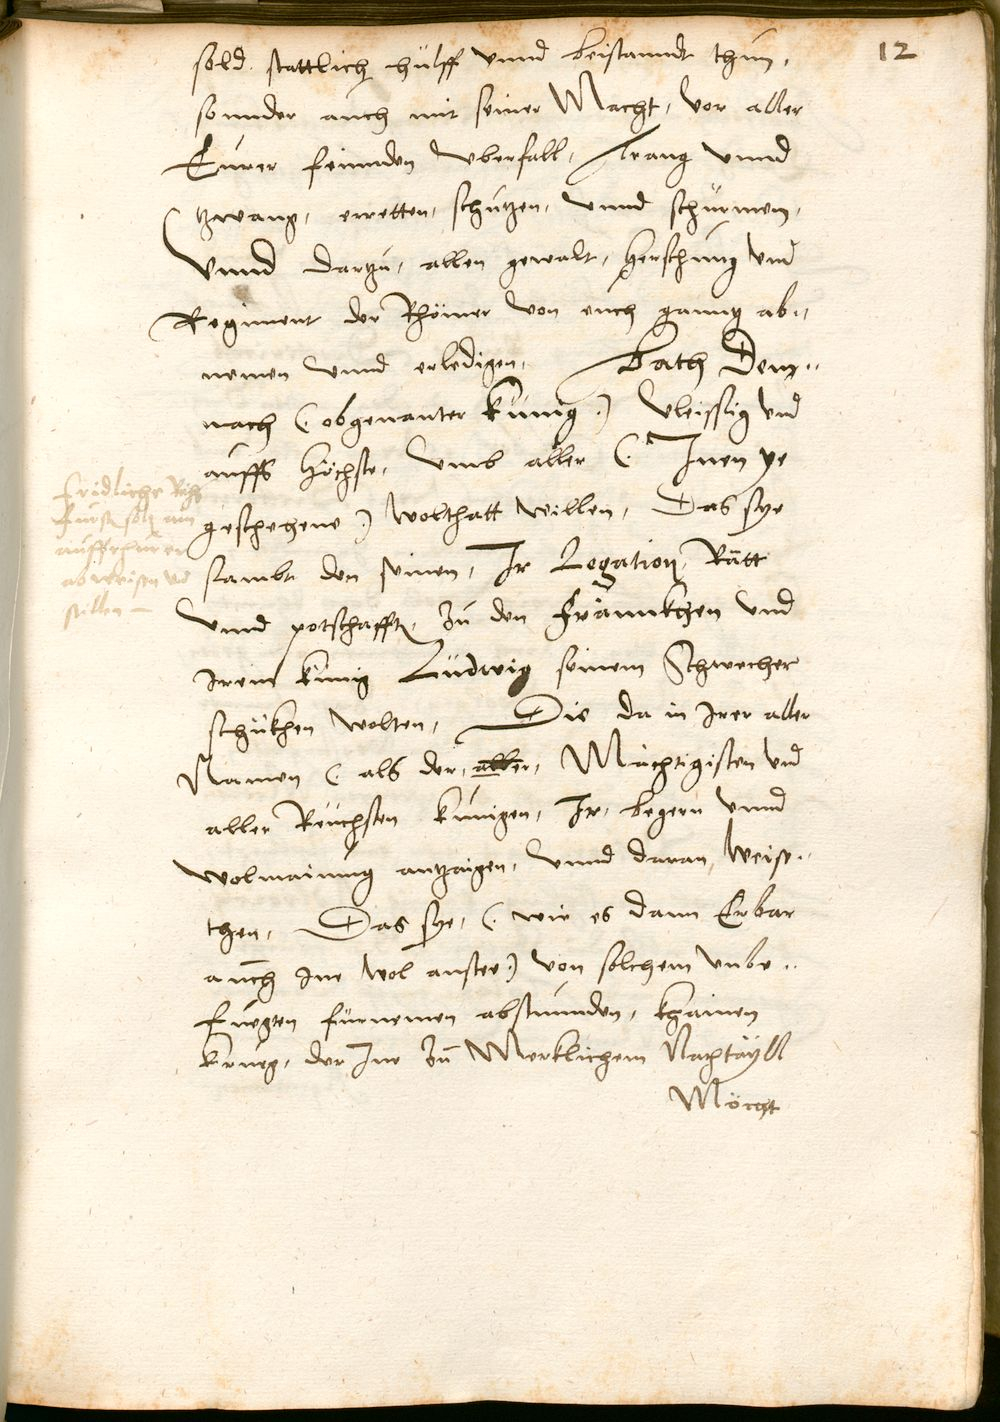 12
sold stattlich hülff vnnd beistanndt thun,
sonnder auch mit seiner Macht, vor aller
Eurer feinnden vberfall, trang vnnd
tzwang, erretten, schutzen, vnnd schürmen,
Vnnd dartzu, allen gewalt, herschung vnd
Regiment der Rhömer von euch ganntz ab..
nemen vnnd erledigen, Bath Dem..
nach (obgenanter Künig) vleissig vnd
auffs höchste, vmb aller (Inen ye
geschehene) wolthatt willen, Das sye
sambt den seinen, Ir Legation, Rätt
vnnd potschafft, Zu den Fränncken vnd
Irem künig Ludwig seinem Schwecher
schickhen wolten, Die da in Irer aller
Namen (als der, aller, Mächtigisten vnd
aller Reichsten kunigen, Ir, begern vnnd
wolmainung antzaigen, vnnd daran, weis..
then, Das sye, (wie es dann Erbar
auch Ine wol anstee) von solchem vnbe..
fuegten fürnemen abstunnden, khainen
krieg, der Ine Zu Merklichem Nachtäyll
Möcht
Fridliche
Fürst soll ain
auffrhuren
abweisen vnd
stillen